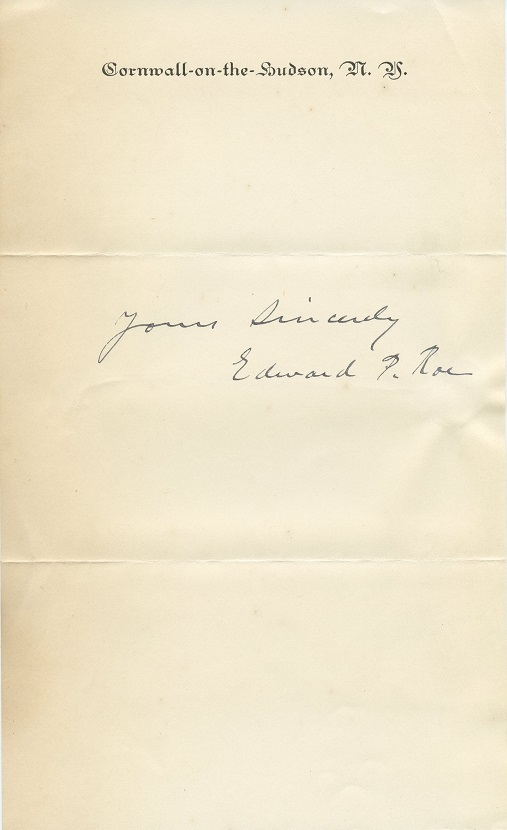 Cornwall-on-the-Hudson, N. Y.
Yours Sincerely
Edward P. Roe